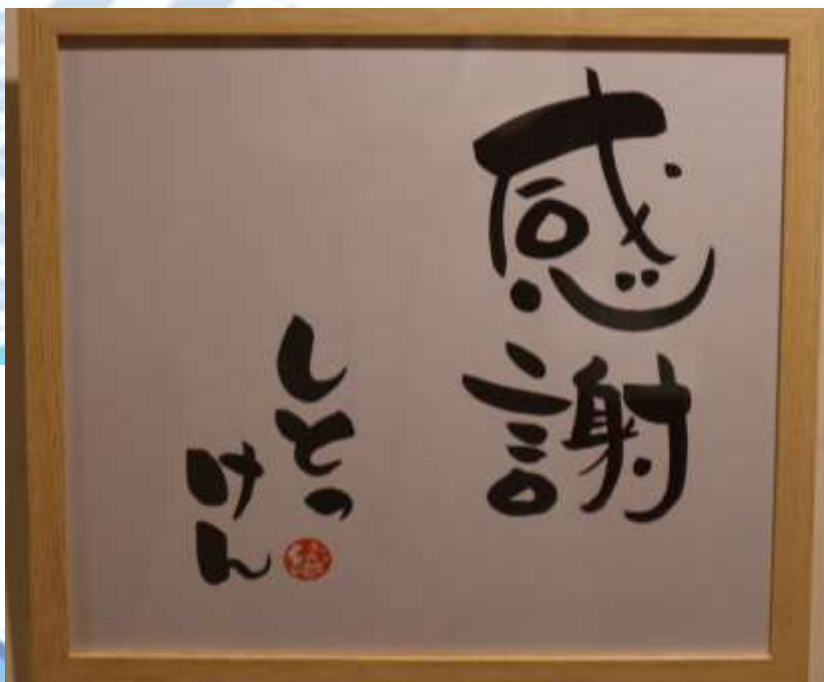 感謝
しとっ
けん